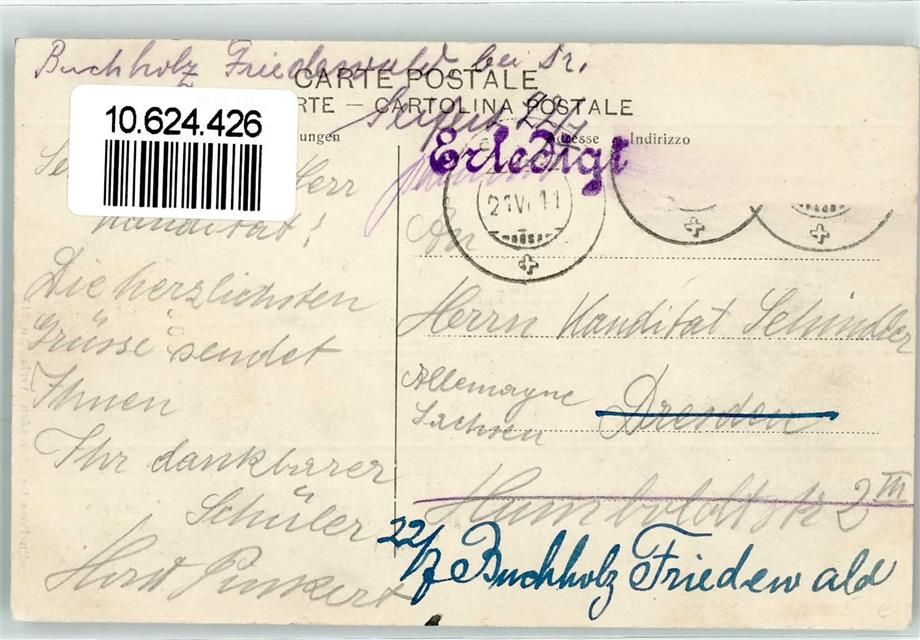 Buchholz Friedewald bei Dr.
CARTE POSTALE
RTE — CARTOLINA POSTALE
Seifert 22/7
ungen
Adresse Indirizzo
10.624.426
Erledigt
Herr
Kanditat!
Die herzlichsten
Grüsse sendet
Ihnen
Ihr dankbarer
Schüler
Horst Punkert
21 VI 11
An
Herrn Kanditat Schindler
Allemagne
Sachsen
Dresden
Humboldtstr 2 III
22/7 Buchholz Friedewald